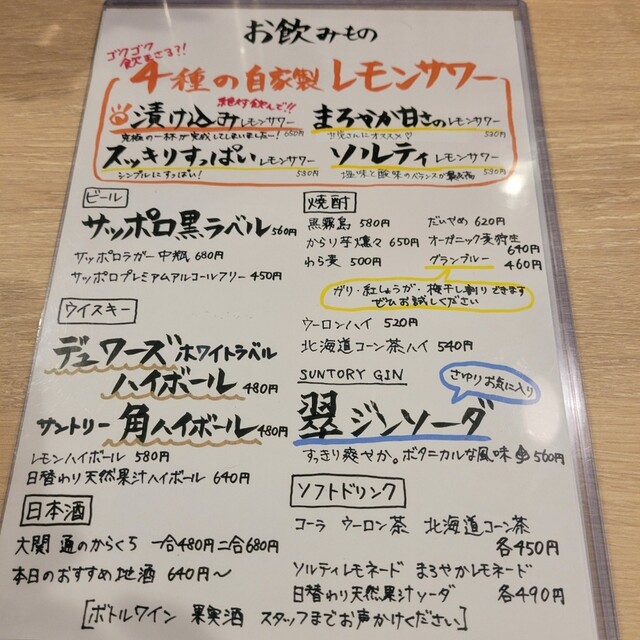 お飲みもの
ゴクゴク
飲もさる?!
4種の自家製レモンサワー
絶対飲んで!!
漬け込みレモンサワー
究極の一杯が完成してしまいましたー! 650円
まろやか甘さのレモンサワー
甘党さんにオススメ♡ 530円
スッキリすっぱいレモンサワー
シンプルにすっぱい! 530円
ソルティレモンサワー
塩味と酸味のバランスが 530円
ビール
サッポロ黒ラベル 560円
サッポロラガー中瓶 680円
サッポロプレミアムアルコールフリー 450円
焼酎
黒霧島 580円
だいやめ 620円
からり芋燻々 650円
オーガニック麦狩生 640円
わら麦 500円
グランブルー 460円
ガリ・紅しょうが・梅干し割りできます
ぜひお試しください
ウーロンハイ 520円
北海道コーン茶ハイ 540円
ウイスキー
デュワーズホワイトラベル
ハイボール 480円
サントリー 角ハイボール 480円
レモンハイボール 580円
日替わり天然果汁ハイボール 640円
SUNTORY GIN
さゆりお気に入り
翠ジンソーダ
すっきり爽やか。ボタニカルな風味 560円
日本酒
大関 通のからくち 一合480円 二合680円
本日のおすすめ地酒 640円〜
ソフトドリンク
コーラ ウーロン茶 北海道コーン茶
各450円
ソルティレモネード まろやかレモネード
日替わり天然果汁ソーダ 各490円
[ボトルワイン 果実酒 スタッフまでお声かけください]